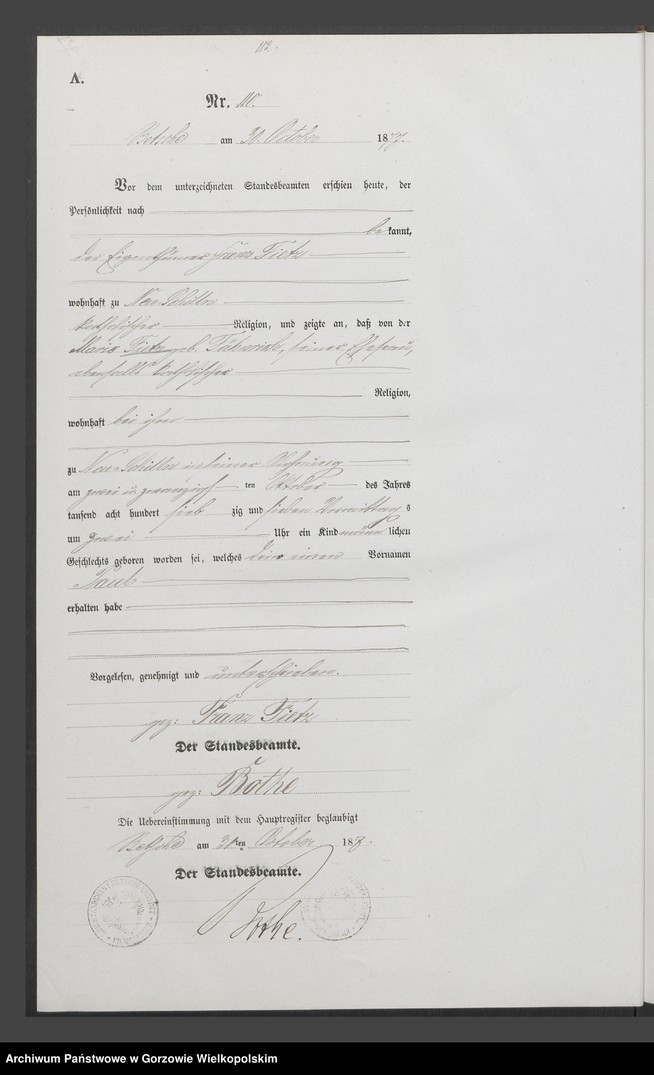 112.
A.
Nr. 110.
Betsche am 30. October 1877.
Vor dem unterzeichneten Standesbeamten erschien heute, der
Persönlichkeit nach
be kannt,
der Eigenthümer Franz Fietz
wohnhaft zu Neu Schilln
katholischer Religion, und zeigte an, daß von der
Maria Fietz geb. seiner Ehefrau,
ebenfalls katholischer
Religion,
wohnhaft bei ihm
zu Neu Schilln in seiner Wohnung
am zwei u zwanzigsten October des Jahres
tausend acht hundert sieb zig und sieben Vormittag s
um zwei Uhr ein Kind männ lichen
Geschlechts geboren worden sei, welches den einen Vornamen
Paul
erhalten habe
Vorgelesen, genehmigt und unterschrieben.
gez: Franz Fietz
Der Standesbeamte.
gez: Bothe
Die Uebereinstimmung mit dem Hauptregister beglaubigt
Betsche am ten October 187.
Der Standesbeamte.
Bothe.
Archiwum Państwowe w Gorzowie Wielkopolskim